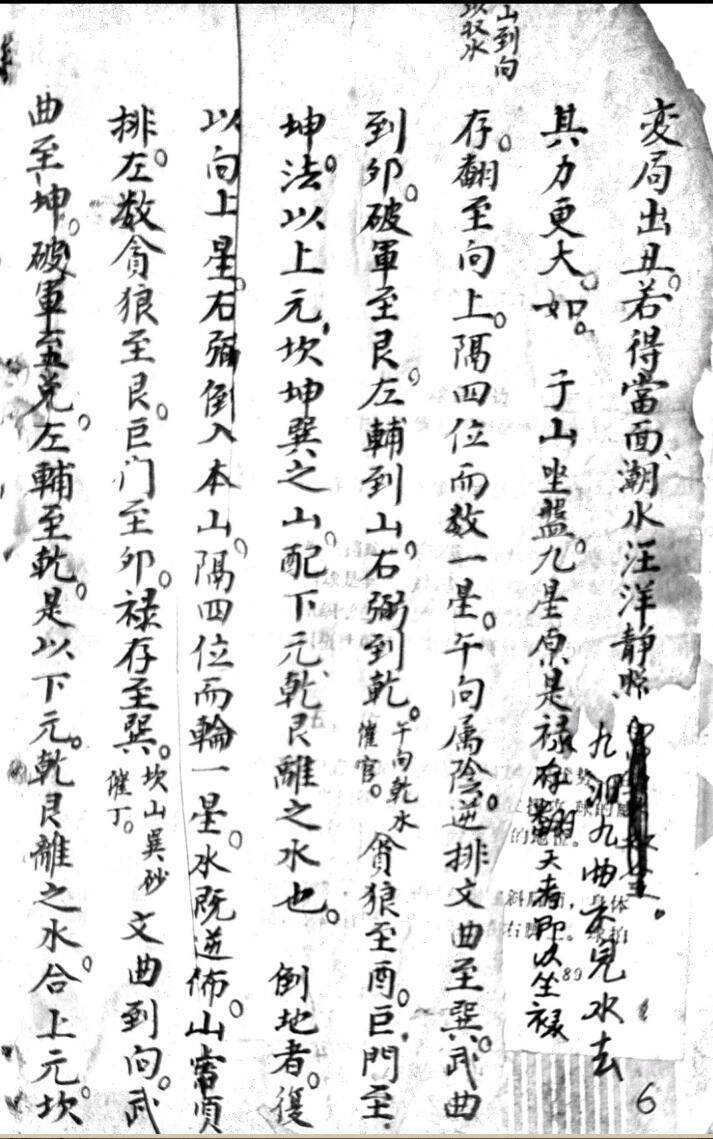 山到向
以收水
变局出丑。若得當面潮水汪洋靜
九洄九曲不見水去
其力更大。如。子山坐盤。九星原是禄存翻天者即以坐禄
存。翻至向上。隔四位而数一星。午向属陰。逆排文曲至巽。武曲
到夘。破軍至艮。左輔到山。右弼到乾。午向乾水催官。貪狼至酉。巨門至
坤。法以上元坎坤巽之山。配下元乾艮離之水也。倒地者。復
以向上星。右弼倒入本山。隔四位而輪一星。水既逆佈。山當順
排。左数貪狼至艮。巨门至夘。禄存至巽。坎山巽砂催丁。文曲到向。武
曲至坤。破軍至兌。左輔至乾。是以下元。乾艮離之水。合上元。坎
6